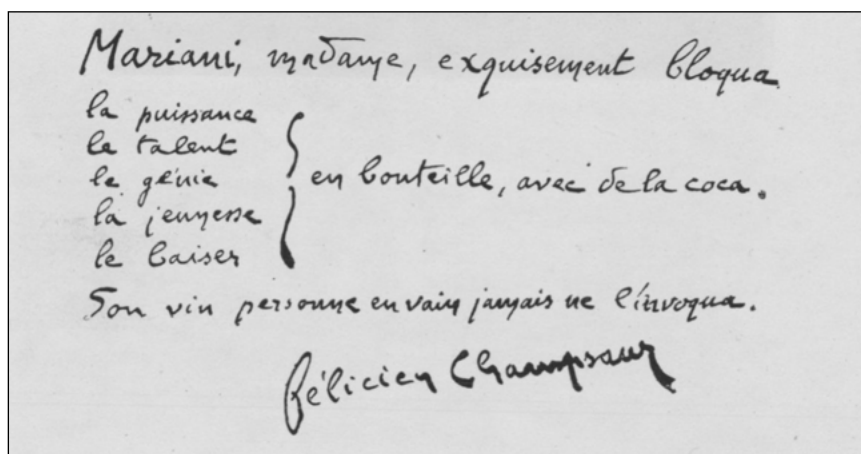 Mariani, madame, exquisement bloqua
la puissance
le talent
le génie
la jeunesse
le baiser
en bouteille, avec de la coca.
Son vin personne en vain jamais ne l'invoqua.
Félicien Champsaur